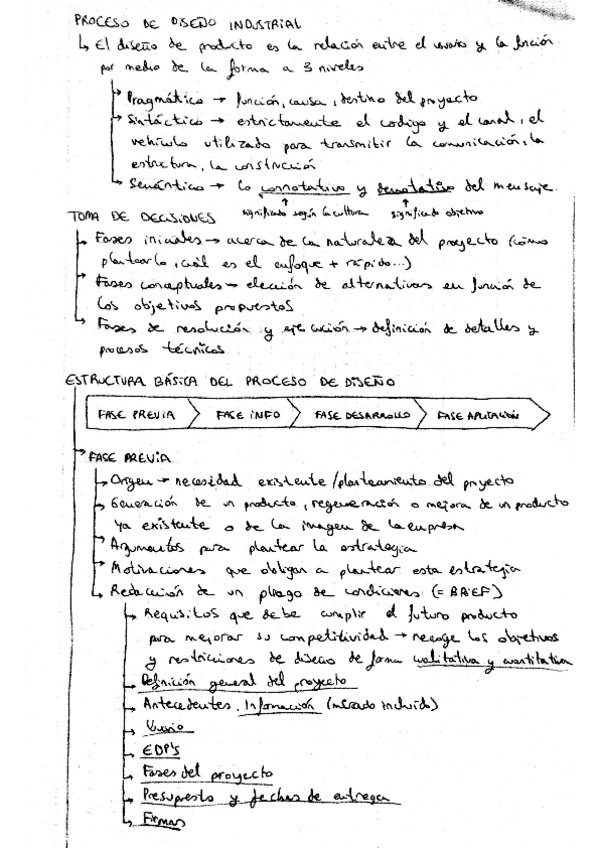 PROCESO DE DISEÑO INDUSTRIAL
↳ El diseño de producto es la relación entre el usuario y la función
por medio de la forma a 3 niveles
→ Pragmático → función, causa, destino del proyecto
→ Sintáctico → estrictamente el codigo y el canal, el
vehículo utilizado para transmitir la comunicación, la
estructura, la construcción
↳ Semántico → lo connotativo y denotativo del mensaje.
significado según la cultura significado objetivo
TOMA DE DECISIONES
→ Fases iniciales → acerca de la naturaleza del proyecto (cómo
plantearlo, cuál es el enfoque + rápido...)
→ Fases conceptuales → elección de alternativas en función de
los objetivos propuestos
↳ Fases de resolución y ejecución → definición de detalles y
procesos técnicos
ESTRUCTURA BÁSICA DEL PROCESO DE DISEÑO
FASE PREVIA FASE INFO FASE DESARROLLO FASE APLICACIÓN
→ FASE PREVIA
→ Origen → necesidad existente / planteamiento del proyecto
→ Generación de un producto, regeneración o mejora de un producto
ya existente o de la imagen de la empresa
→ Argumentos para plantear la estrategia
→ Motivaciones que obligan a plantear esta estrategia
↳ Redacción de un pliego de condiciones (= BRIEF)
→ Requisitos que debe cumplir el futuro producto
para mejorar su competitividad → recoge los objetivos
y restricciones de diseño de forma cualitativa y cuantitativa
→ Definición general del proyecto
→ Antecedentes. Información (mercado incluido)
→ Usuario
→ EDP's
→ Fases del proyecto
→ Presupuesto y fechas de entrega
↳ Firmas